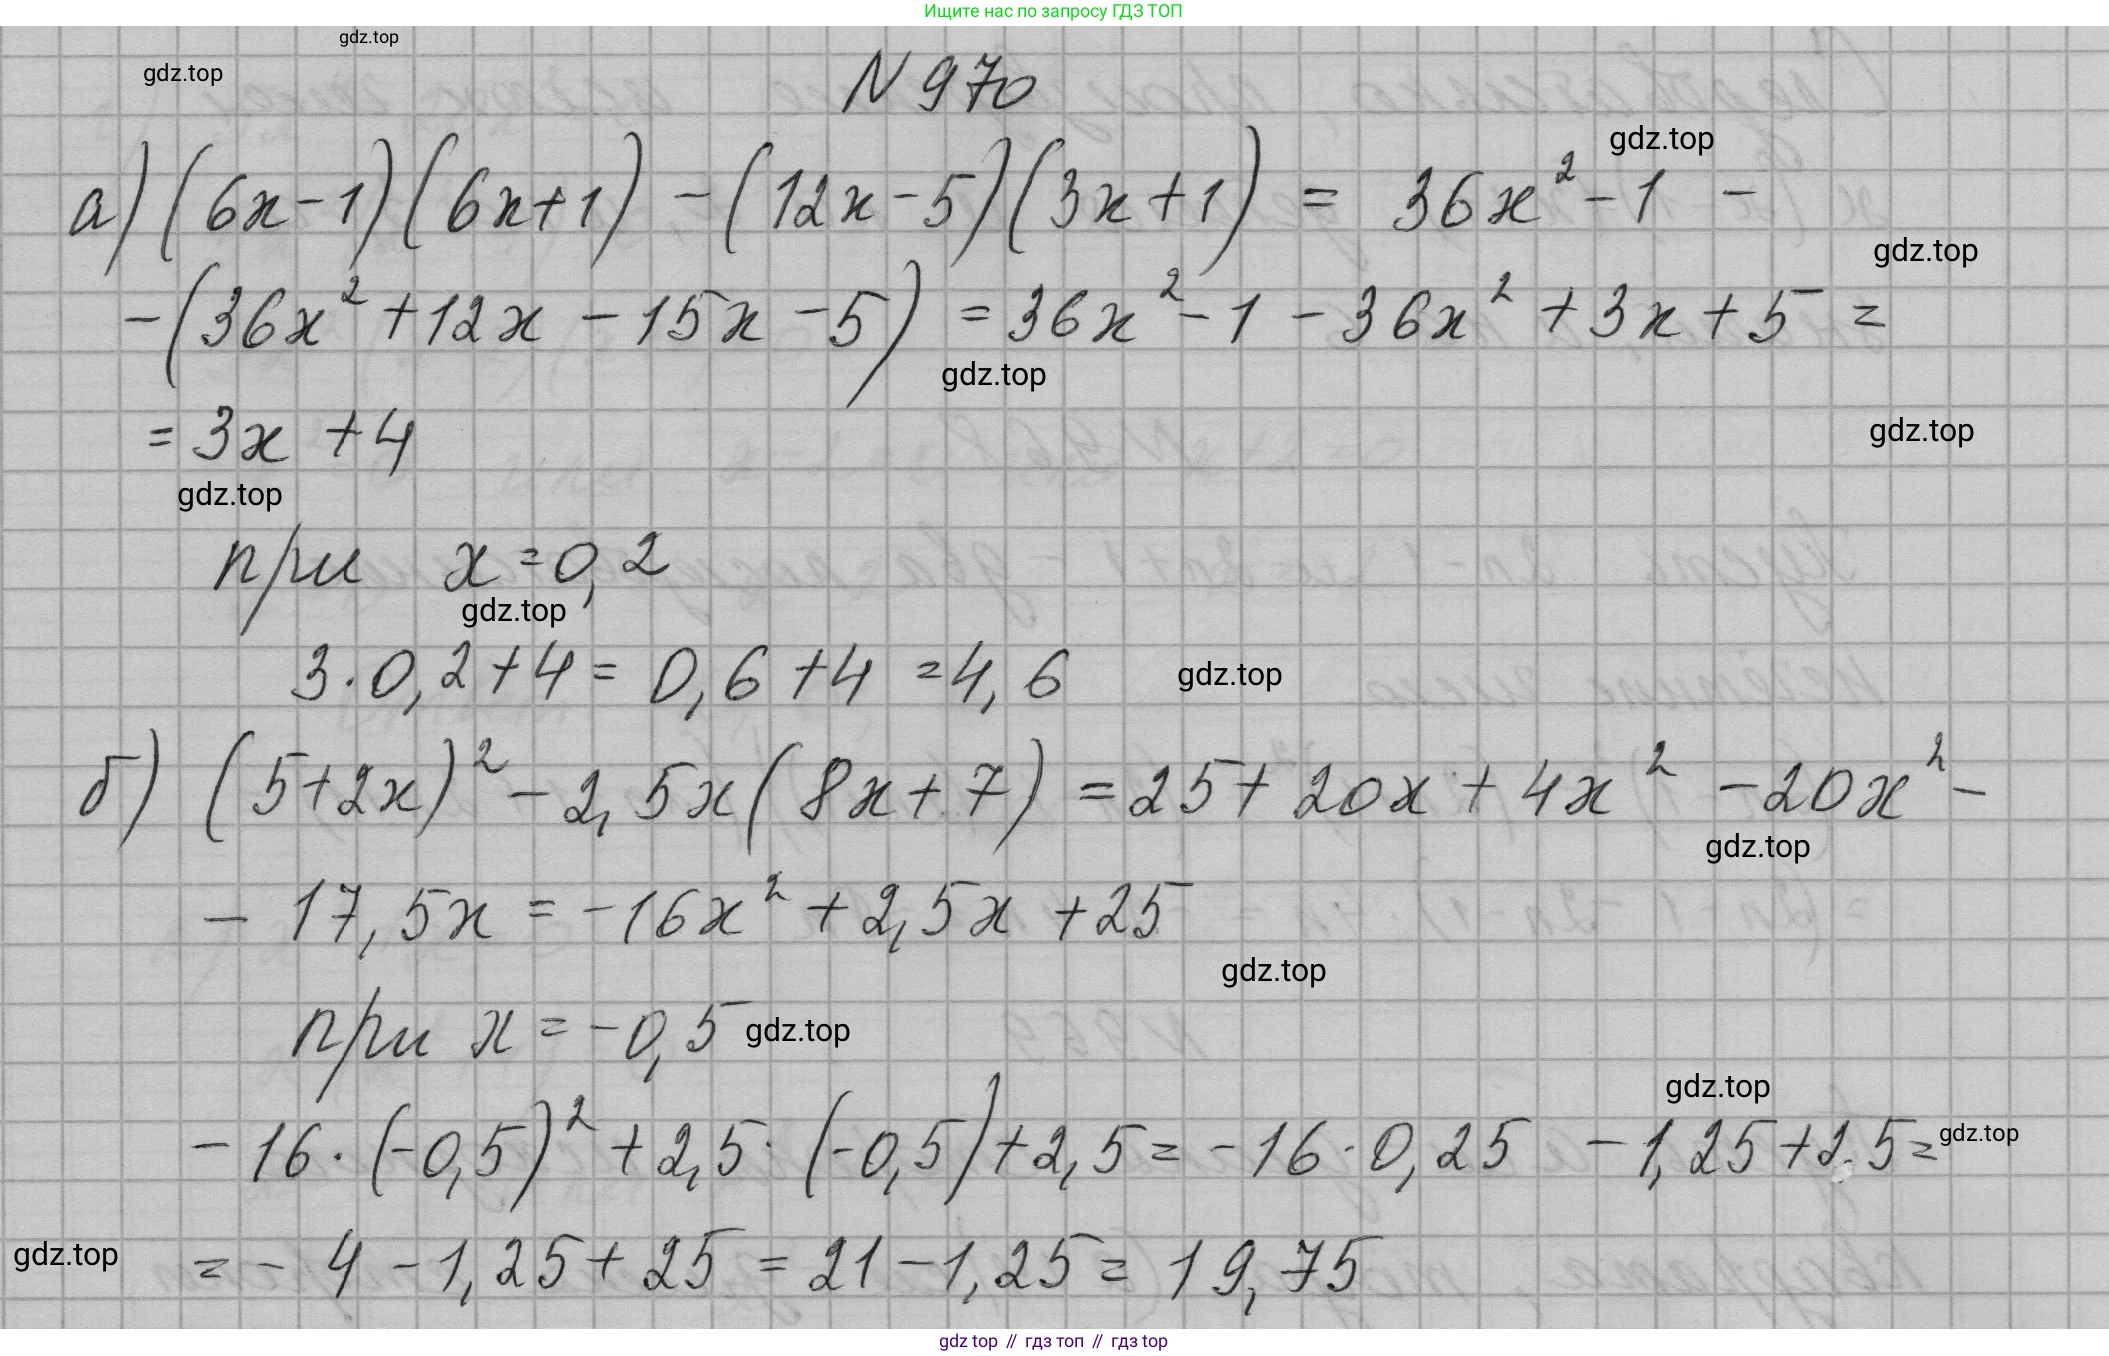 Ищите нас по запросу ГДЗ ТОП
gdz.top
gdz.top
N 970
gdz.top
а) (6x-1)(6x+1) - (12x-5)(3x+1) = 36x² - 1 -
gdz.top
- (36x² + 12x - 15x - 5) = 36x² - 1 - 36x² + 3x + 5 =
gdz.top
= 3x + 4
gdz.top
gdz.top
при x = 0,2
gdz.top
3·0,2 + 4 = 0,6 + 4 = 4,6
gdz.top
б) (5+2x)² - 2,5x(8x+7) = 25 + 20x + 4x² - 20x² -
gdz.top
- 17,5x = -16x² + 2,5x + 25
gdz.top
при x = -0,5
gdz.top
gdz.top
-16·(-0,5)² + 2,5·(-0,5) + 2,5 = -16·0,25 - 1,25 + 2.5 =
gdz.top
gdz.top
= - 4 - 1,25 + 25 = 21 - 1,25 = 19,75
gdz top // гдз топ // гдз top